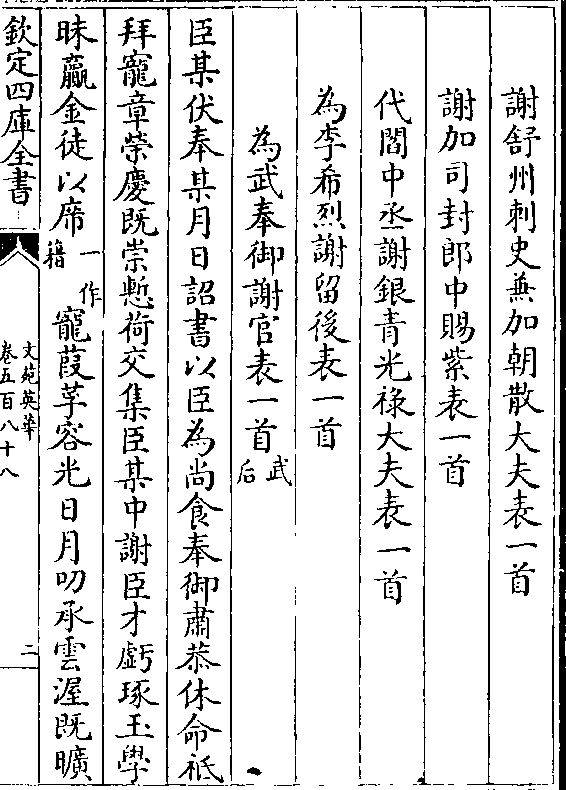 謝舒州刺史兼加朝散大夫表一首
謝加司封郎中賜紫表一首
代閻中丞謝銀青光祿大夫表一首
為李希烈謝留後表一首
為武奉御謝官表一首武后
臣某伏奉某月日詔書以臣為尚食奉御肅恭休命祗
拜寵章榮慶既崇慙荷交集臣某中謝臣才虧琢玉學
昧籯金徒以席一作籍寵葭莩容光日月叨承雲渥既曠
欽定四庫全書
文苑英華
卷五百八十八
二